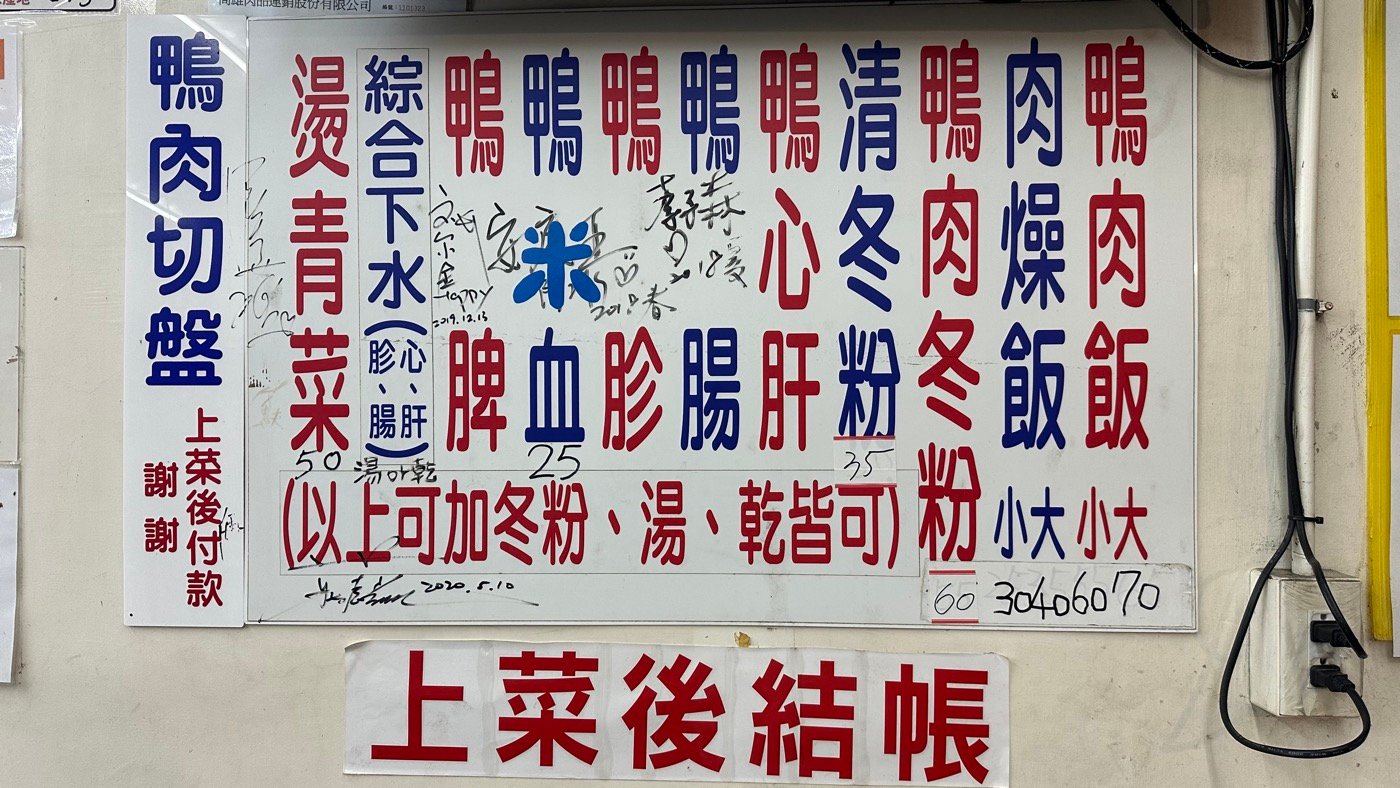 鴨肉飯
大 小
70 60
肉燥飯
大 小
40 30
鴨肉冬粉
60
清冬粉
35
鴨心肝
鴨腸
鴨胗
鴨米血
25
鴨脾
綜合下水(心、肝、胗、腸)
湯or乾
燙青菜
50
(以上可加冬粉、湯、乾皆可)
李子森
2018夏
2019.12.13
Happy
2020.5.10
鴨肉切盤
上菜後付款
謝謝
上菜後結帳